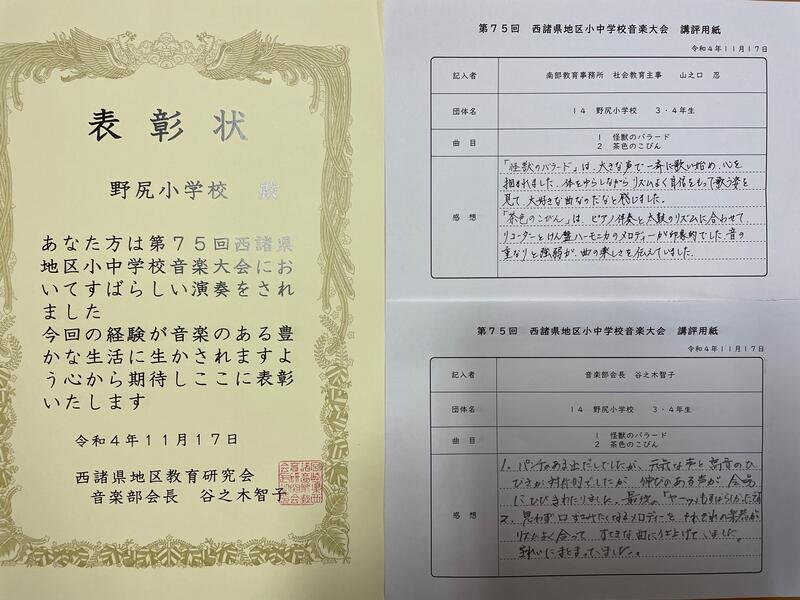 表彰状
野尻小学校 殿
あなた方は第７５回西諸県
地区小中学校音楽大会にお
いてすばらしい演奏をされ
ました
今回の経験が音楽のある豊
かな生活に生かされますよ
う心から期待しここに表彰
いたします
令和４年１１月１７日
西諸県地区教育研究会
音楽部会長 谷之木智子
第７５回 西諸県地区小中学校音楽大会 講評用紙
令和４年１１月１７日
記入者 南部教育事務所 社会教育主事 山之口 忍
団体名 １４ 野尻小学校 ３・４年生
曲目 １ 怪獣のバラード
２ 茶色のこびん
感想
「怪獣のバラード」は、大きな声で一斉に歌い始め、心を
掴まれました。体をゆらしながらリズムよく自信をもって歌う姿を
見て、大好きな曲なのだなと感じました。
「茶色のこびん」は、ピアノ伴奏と太鼓のリズムに合わせて、
リコーダーとけん盤ハーモニカのメロディーが印象的でした。音の
重なりと強弱が、曲の楽しさを伝えていました。
第７５回 西諸県地区小中学校音楽大会 講評用紙
令和４年１１月１７日
記入者 音楽部会長 谷之木智子
団体名 １４ 野尻小学校 ３・４年生
曲目 １ 怪獣のバラード
２ 茶色のこびん
感想
1. パンチのある出だしでしたが、元気な声と高音のひ
びきが対照的でしたが、伸びのある声が会場
にひびきわたりました。最後の「ヤーッ」もすばらしかったです
2. 思わず口ずさみたくなるメロディーを、それぞれの楽器が
リズムよく合って、すてきな曲に仕上げていました。
きれいにまとまっていました。